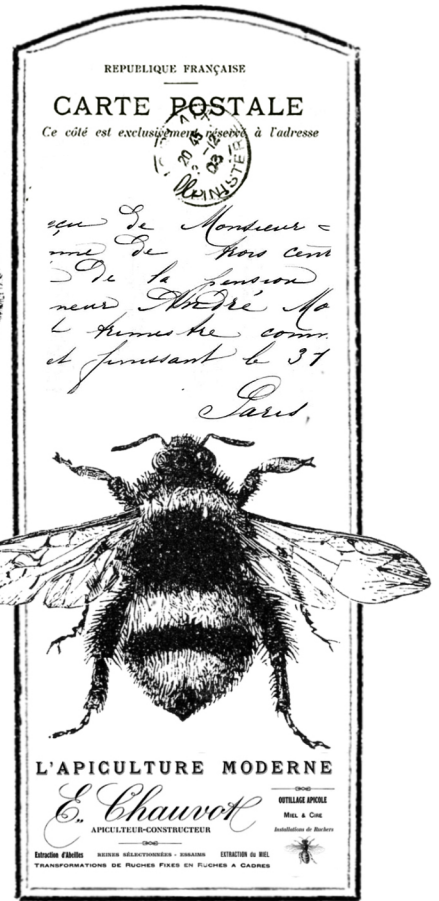 REPUBLIQUE FRANÇAISE
CARTE POSTALE
Ce côté est exclusivement réservé à l'adresse
20 45
-12
03
FINISTERE
çu de Monsieur
me de trois cent
De la pension
neur André Mo
trimestre com
et finissant le 31
Paris,
L'APICULTURE MODERNE
E. Chauvot
APICULTEUR-CONSTRUCTEUR
OUTILLAGE APICOLE
MIEL & CIRE
Installations de Ruchers
Extraction d'Abeilles
REINES SÉLECTIONNÉES - ESSAIMS
EXTRACTION du MIEL
TRANSFORMATIONS DE RUCHES FIXES EN RUCHES A CADRES